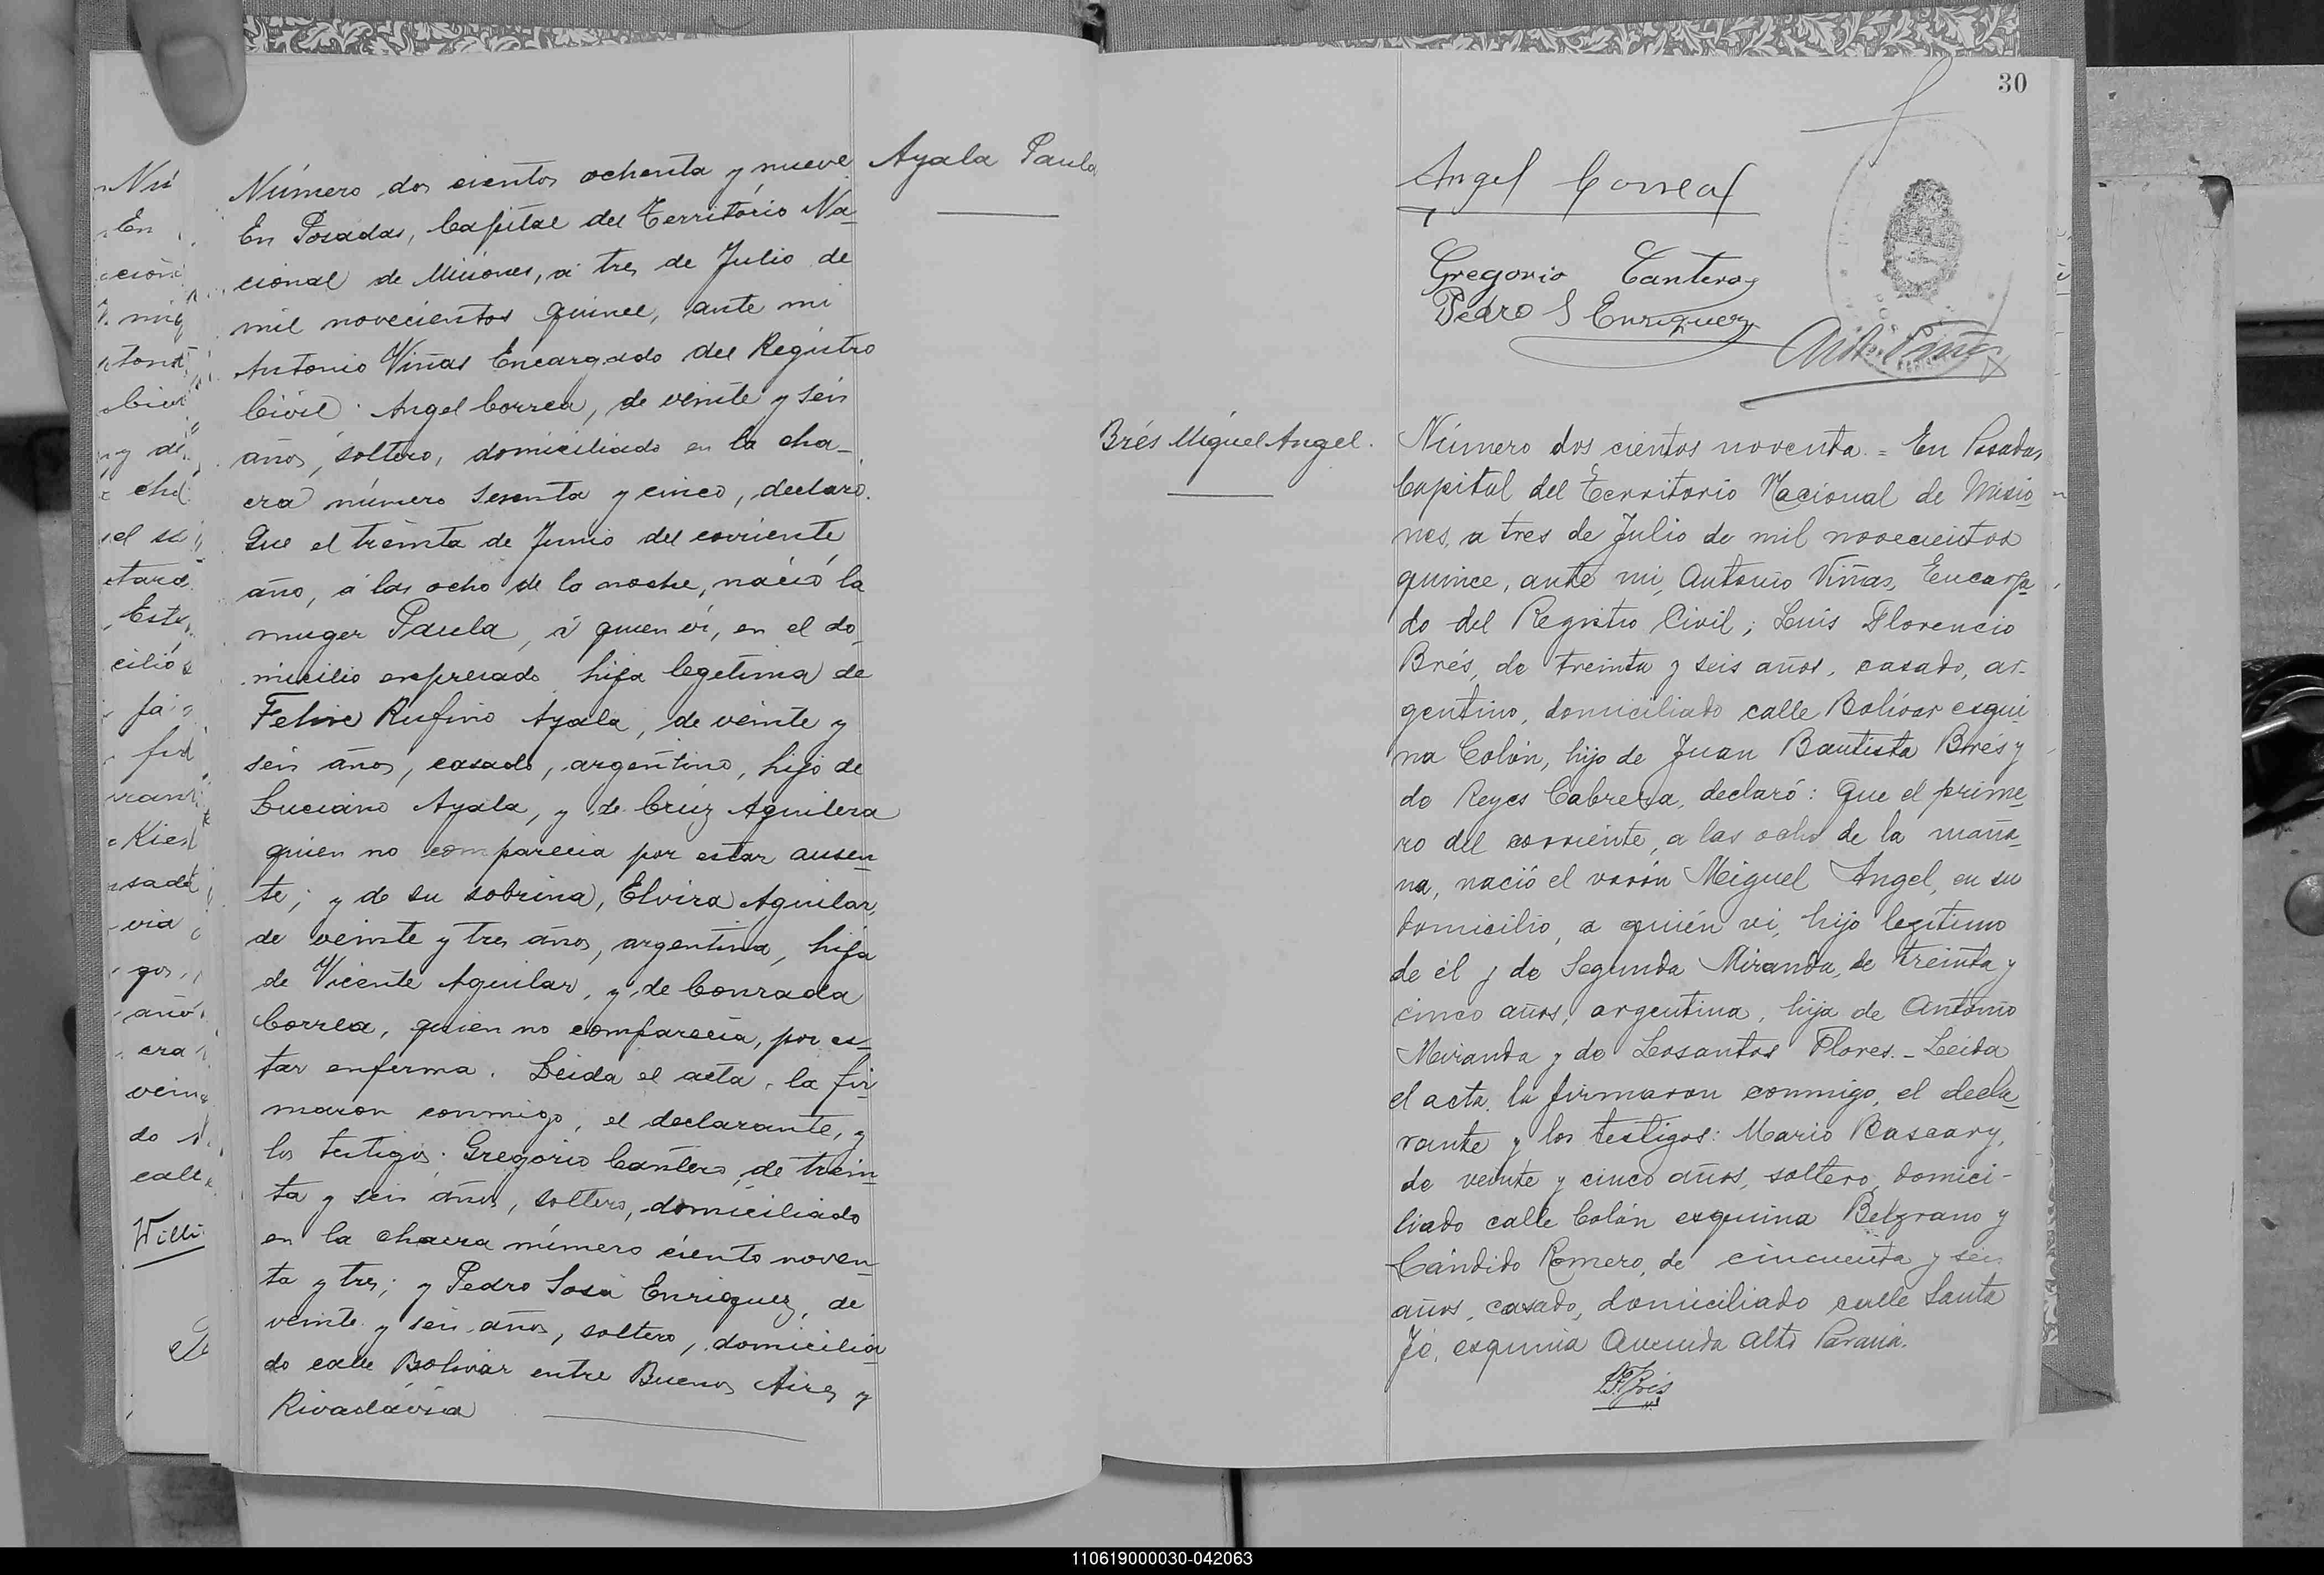 Número dos cientos ochenta y nueve
Ayala Paula
En Posadas, Capital del Território Na-
cional de Misiones, á tres de Julio de
mil novecientos quince, ante mi
Antonio Viñas Encargado del Registro
Civil. Angel Correa, de veinte y seis
años, soltero, domiciliado en la cha-
cra número sesenta y cinco, declaró.
Que el treinta de Junio del corriente
año, á las ocho de la noche, nació la
muger Paula, á quien ví, en el do-
micilio expresado hija legitima de
Felipe Rufino Ayala, de veinte y
seis años, casado, argentino, hijo de
Luciano Ayala, y de Cruz Aguilera
quien no comparecia por estar ausen-
te; y de su sobrina, Elvira Aguilar,
de veinte y tres años, argentina, hija
de Vicente Aguilar, y de Conrada
Correa, quien no comparecia, por es-
tar enferma. Leida el acta, la fir-
maron conmigo, el declarante, y
los testigos. Gregorio Cantero, de trein-
ta y seis años, soltero, domiciliado
en la chacra número ciento noven-
ta y tres; y Pedro Sosa Enriquez, de
veinte y seis años, soltero, domicilia-
do calle Bolivar entre Buenos Aires y
Rivadávia
30
Angel Correa
Gregorio Cantero
Pedro S Enriquez
Brés Miguel Angel.
Número dos cientos noventa. = En Posadas
Capital del Territorio Nacional de Misio-
nes, a tres de Julio de mil novecientos
quince, ante mi, Antonio Viñas, Encarga-
do del Registro Civil; Luis Florencio
Brés, de treinta y seis años, casado, ar-
gentino, domiciliado calle Bolívar esqui-
na Colón, hijo de Juan Bautista Brés y
de Reyes Cabrera, declaró: Que el prime-
ro del corriente, a las ocho de la maña-
na, nació el varón Miguel Angel, en su
domicilio, a quién vi, hijo legitimo
de él y de Segunda Miranda, de treinta y
cinco años, argentina, hija de Antonio
Miranda y de Losantos Flores. - Leida
el acta, la firmaron conmigo, el decla-
rante y los testigos: Mario Bascary,
de veinte y cinco años, soltero, domici-
liado calle Colón esquina Belgrano y
Cándido Romero, de cincuenta y seis
años, casado, domiciliado calle Santa
Fé, esquina Avenida Alto Paraná.
L.F. Brés
110619000030-042063